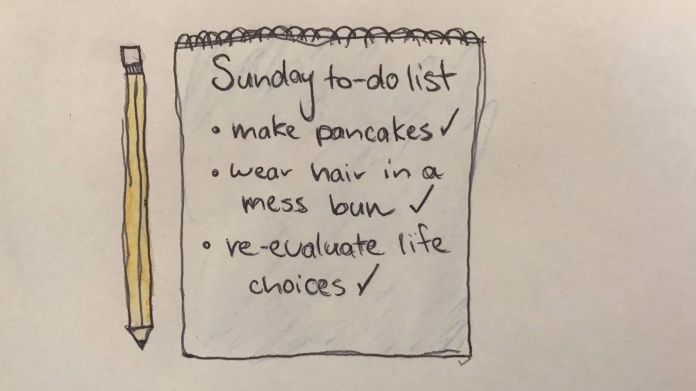 Sunday to-do list
• make pancakes ✓
• wear hair in a
mess bun ✓
• re-evaluate life
choices ✓